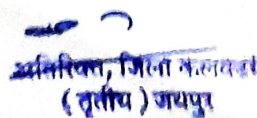 अतिरिक्त, जिला कलक्टर
(तृतीय) जयपुर